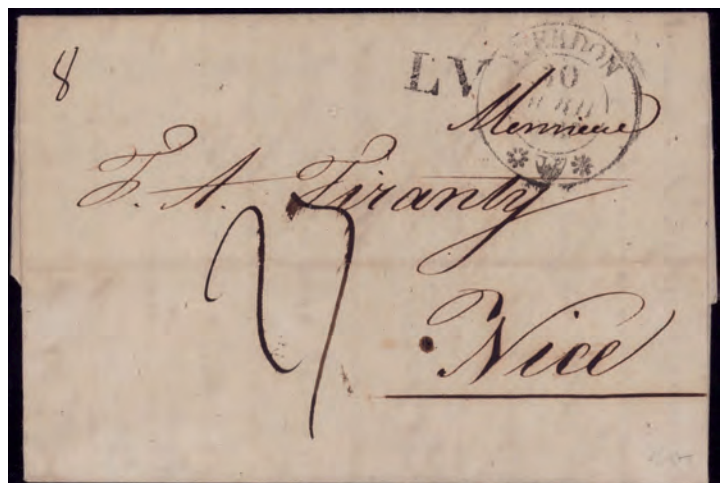 8
LV
YVERDON
10
Monsieur
F. A. Tiranty
27
Nice